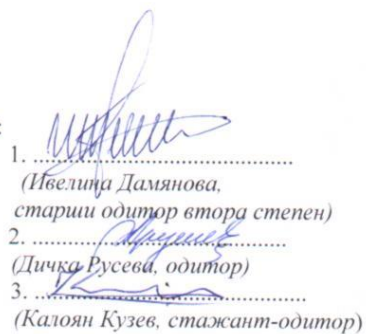 1. ..........................................
(Ивелина Дамянова,
старши одитор втора степен)
2. .........................................
(Дичка Русева, одитор)
3. ..........................................
(Калоян Кузев, стажант-одитор)